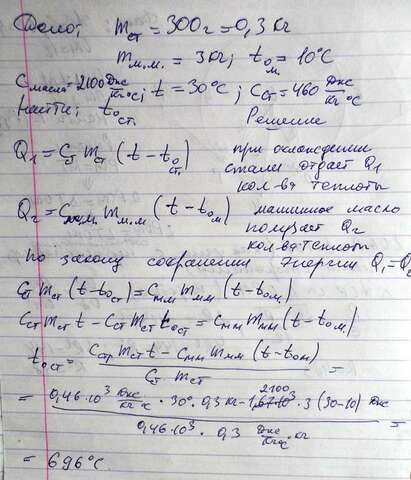 Дано: m ст = 300г = 0,3 кг
m м.м. = 3кг; t o м. = 10°C
C масла = 2100 Дж/кг°C; t = 30°C; C ст = 460 Дж/кг°C
Найти: t o ст. Решение
Q1 = C ст m ст (t − t o ст.) при охлаждении стали отдает Q1 кол-ва теплоты
Q2 = C м.м. m м.м (t − t ом) машинное масло получает Q2 кол-ва теплоты
По закону сохранения энергии Q1 = Q
C ст m ст (t − t ост) = C мм m мм (t − t ом)
C ст m ст t − C ст m ст t ост = C мм m мм (t − t ом)
t ост = (C ст m ст t − C мм m мм (t − t ом)) / (C ст m ст) =
= (0,46·10³ Дж/кг°C · 30° · 0,3 кг − 2100 · 3 (30−10) Дж) / (0,46·10³ · 0,3 Дж/кг°C · кг) =
= 696°C